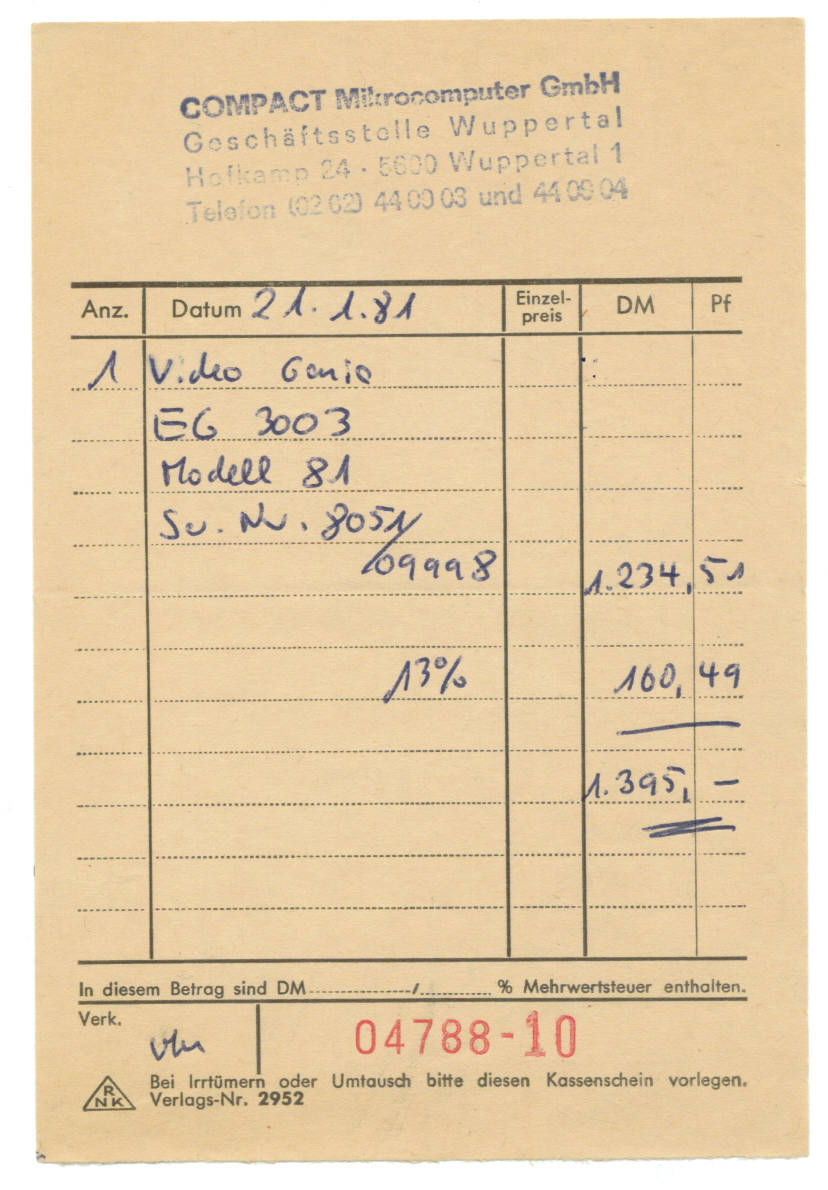 COMPACT Mikrocomputer GmbH
Geschäftsstelle Wuppertal
Hofkamp 24 · 5600 Wuppertal 1
Telefon (02 02) 44 09 03 und 44 09 04
Anz. Datum 21.1.81 Einzel-preis DM Pf
1 Video Genie
EG 3003
Modell 81
Sr. Nr. 8051/
09998 1.234,51
13% 160,49
1.395,–
In diesem Betrag sind DM / % Mehrwertsteuer enthalten.
Verk.
04788-10
RNK
Bei Irrtümern oder Umtausch bitte diesen Kassenschein vorlegen.
Verlags-Nr. 2952